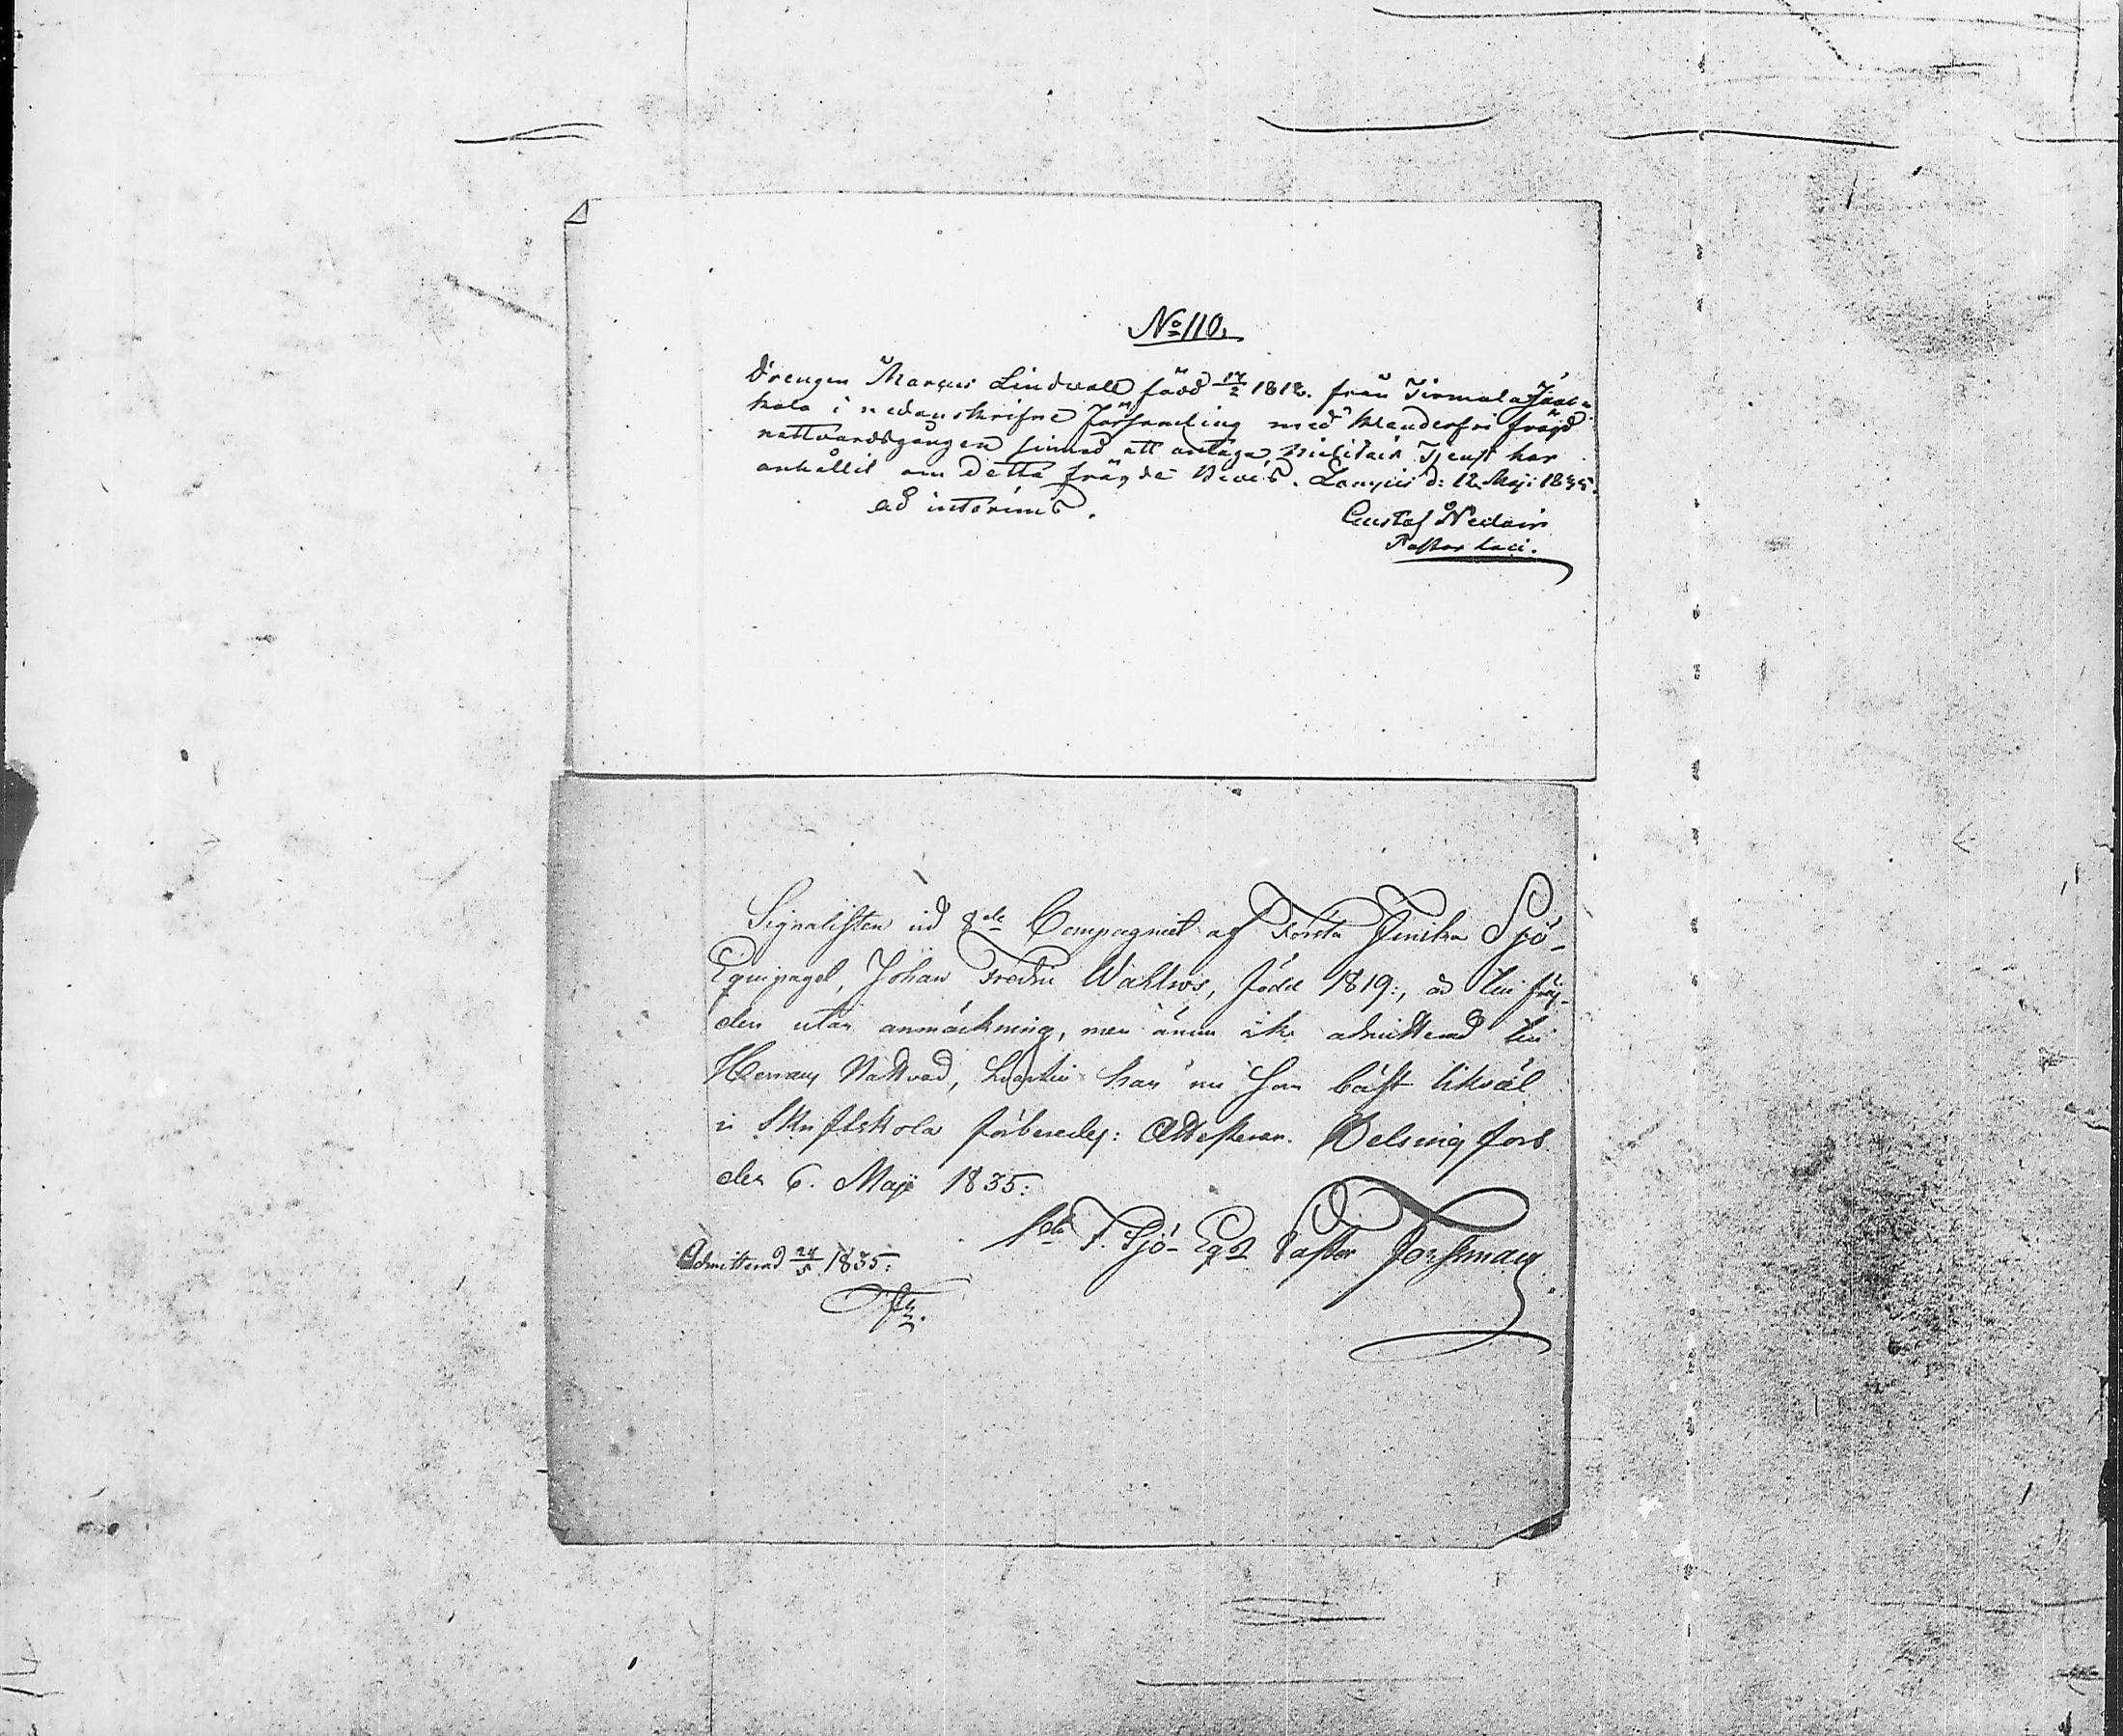 No 110.
Drengen Marcus Lindvall född 17/2 1812. från Tirmula Jaak-
kola i nedanskrifne Församling med klanderfri frägd
nattvardsgången sinnad att antaga Militair Tjenst har
anhållit om detta frägde Bevis. Lampis d: 12 Maji 1835.
ad interims.
Gustaf
Pastor loci.
Signalisten vid 8de Compagniet af Första Finska Sjö-
Equipaget, Johan Fredric Wahlros, född 1819:, är till fräj-
den utan anmärkning, men ännu icke admitterad till
Herrans Nattvard, hvartill han nu som bäst likväl
i Skriftskola förberedes: Attesterar. Helsingfors
den 6. Maji 1835:
1sta F. Sjö-Eqp Pastor Forssman
Admitterad 24/5 1835: